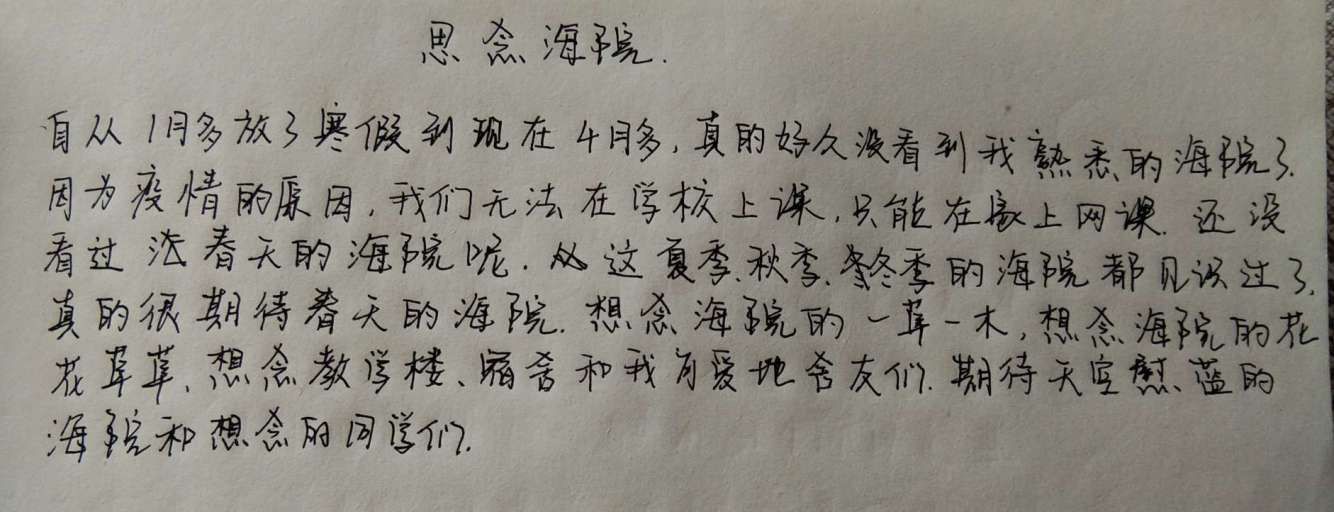 思念海院.
自从1月多放了寒假到现在4月多,真的好久没看到我熟悉的海院了.
因为疫情的原因,我们无法在学校上课,只能在家上网课.还没
看过 春天的海院呢. 这夏季、秋季、冬季的海院都见识过了,
真的很期待春天的海院.想念海院的一草一木,想念海院的花
花草草、想念教学楼、宿舍和我可爱地舍友们.期待天空 蓝的
海院和想念的同学们.